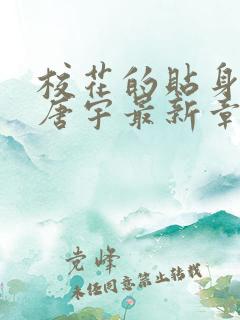 校花的贴身
唐宇最新章
党峰
未经同意禁止转载